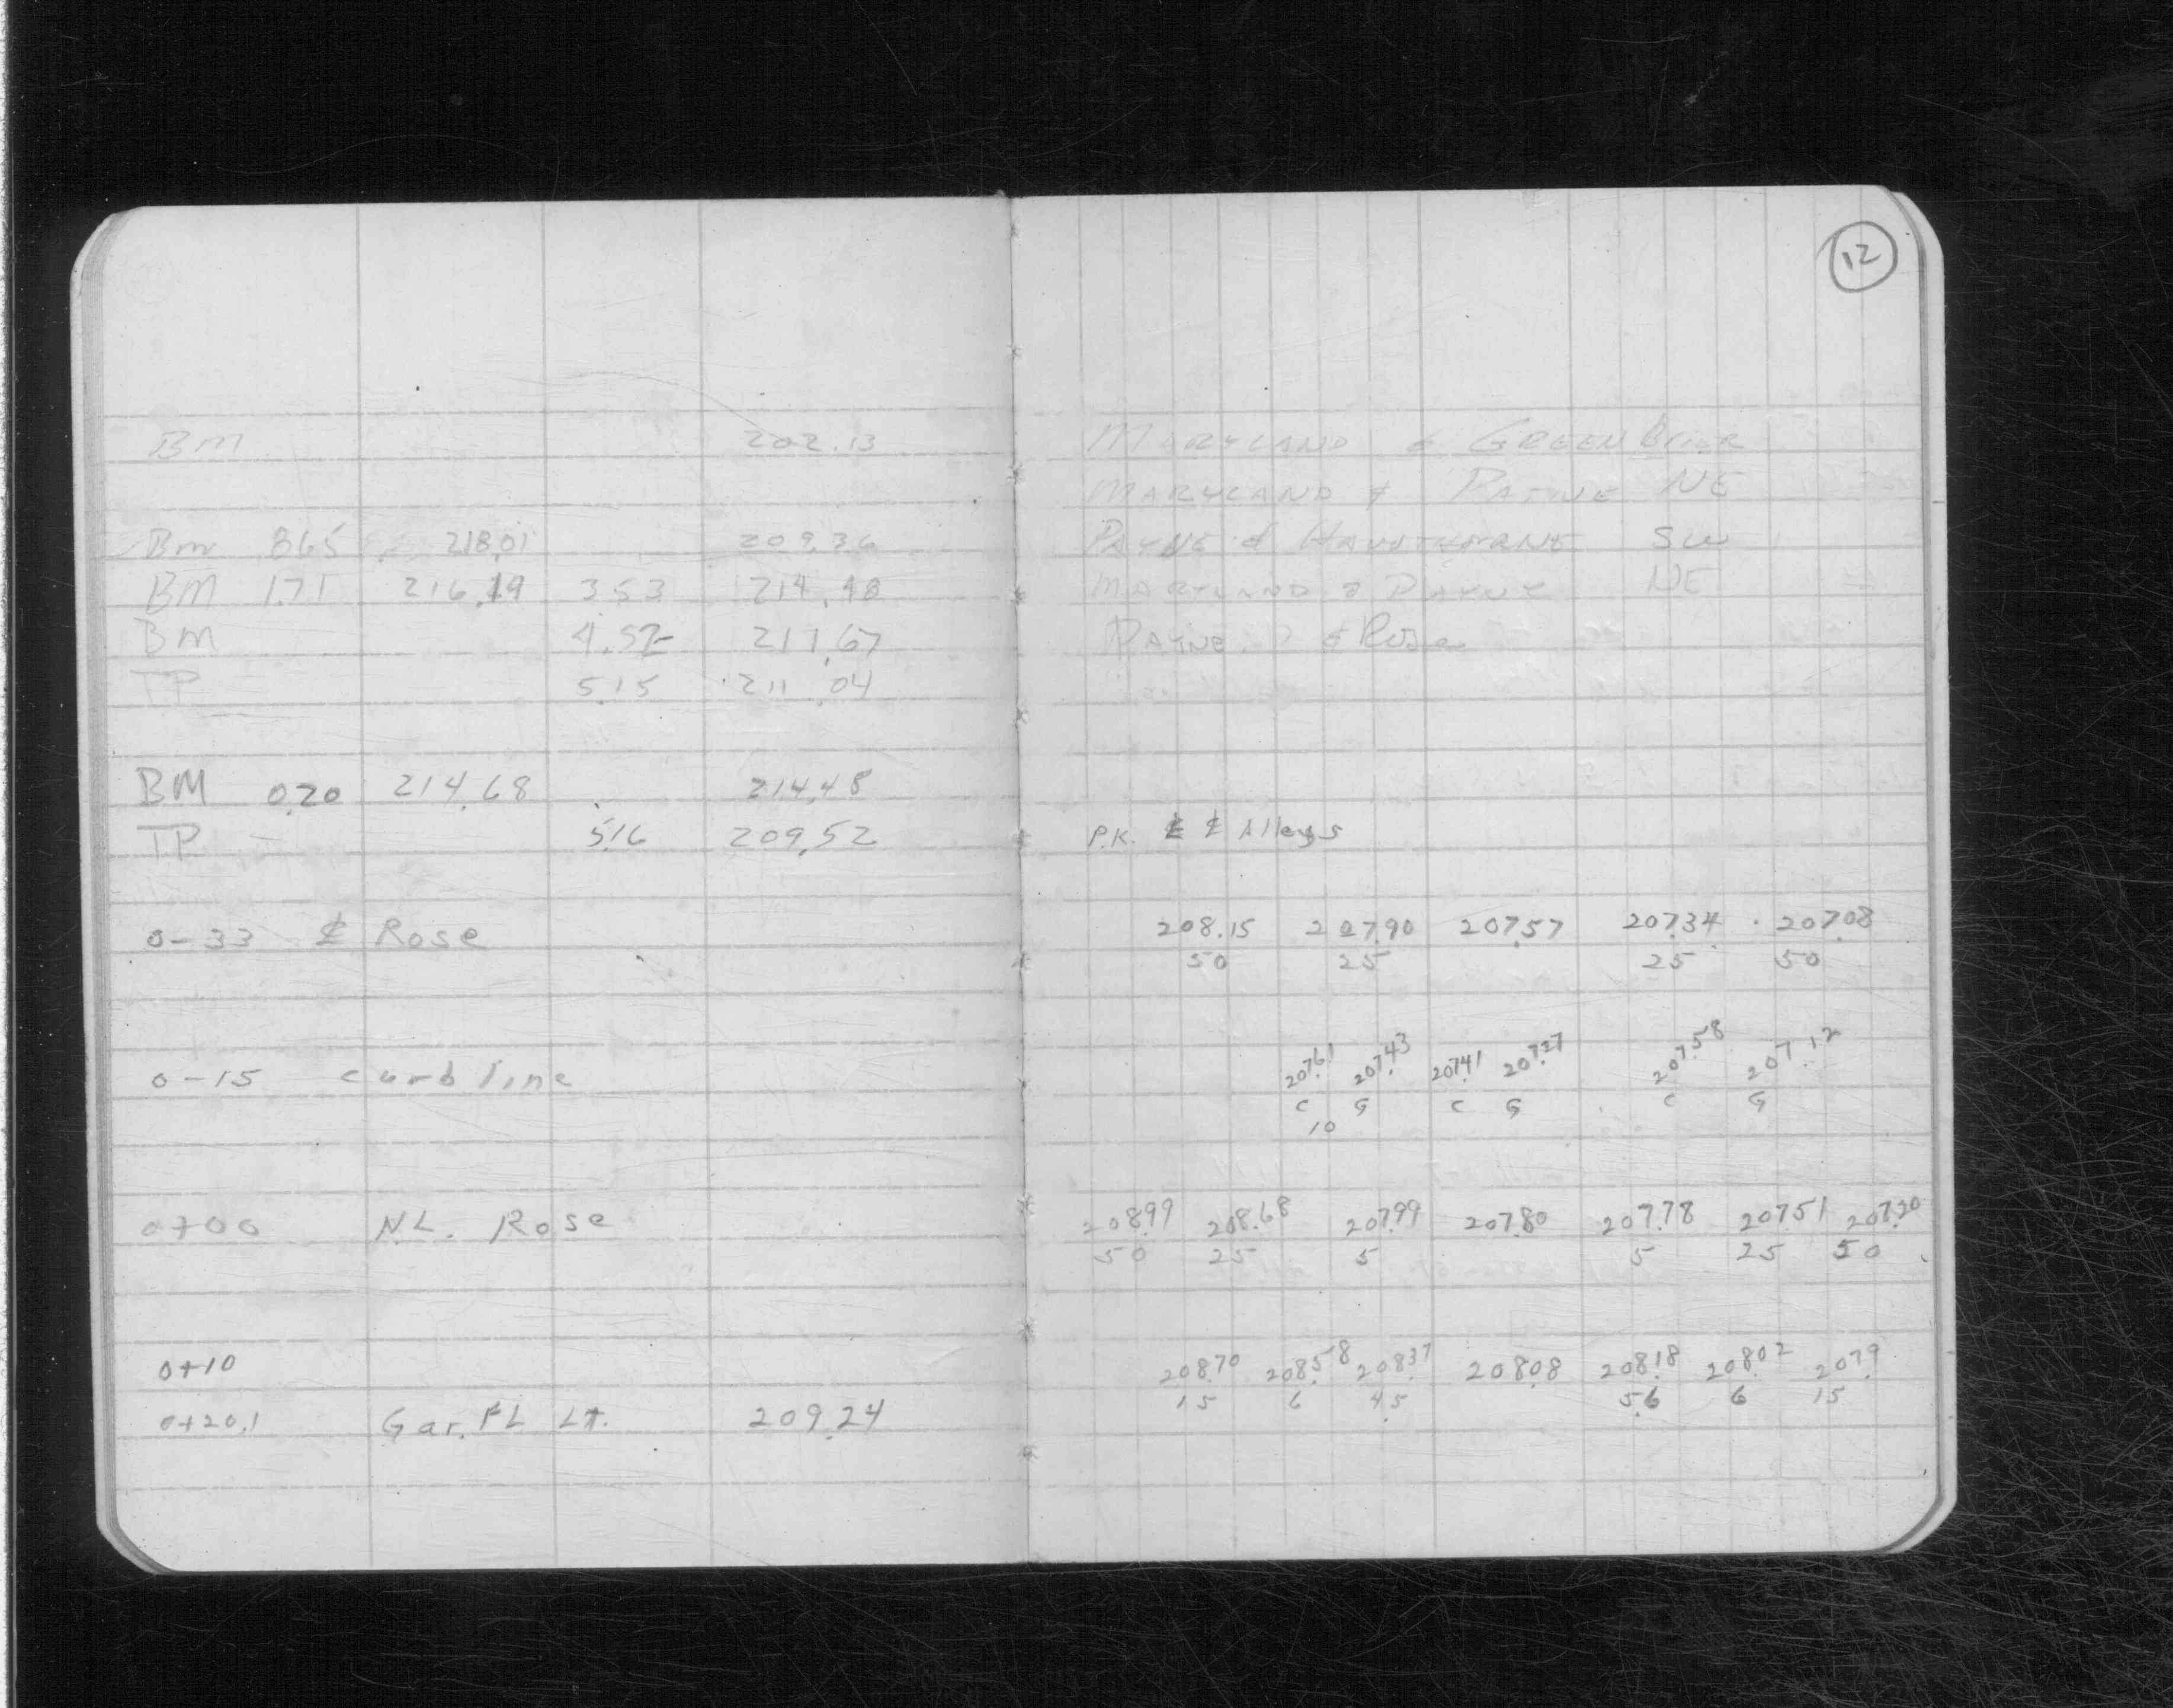 12
BM 202.13 MARYLAND & GREENBrier
MARYLAND & PAYNE NE
BM 8.65 218.01 209.36 PAYNE & HAWTHORNE SW
BM 1.71 216.19 3.53 214.48 MARYLAND & PAYNE NE
BM 4.52 211.67 PAYNE & Rose
TP 5.15 211.04
BM 0.20 214.68 214.48
TP 5.16 209.52 P.K. ℄ ℄ Alleys
0-33 ℄ Rose 208.15 207.90 207.57 207.34 207.08
50 25 25 50
0-15 curb line 207.61 207.43 207.41 207.27 207.58 207.12
C G C G C G
10
0+00 N.L. Rose 208.99 208.68 207.99 207.80 207.78 207.51 207.20
50 25 5 5 25 50
0+10 208.70 208.58 208.37 208.08 208.18 208.02 207.9
15 6 4.5 5.6 6 15
0+20.1 Gar. FL Lt. 209.24